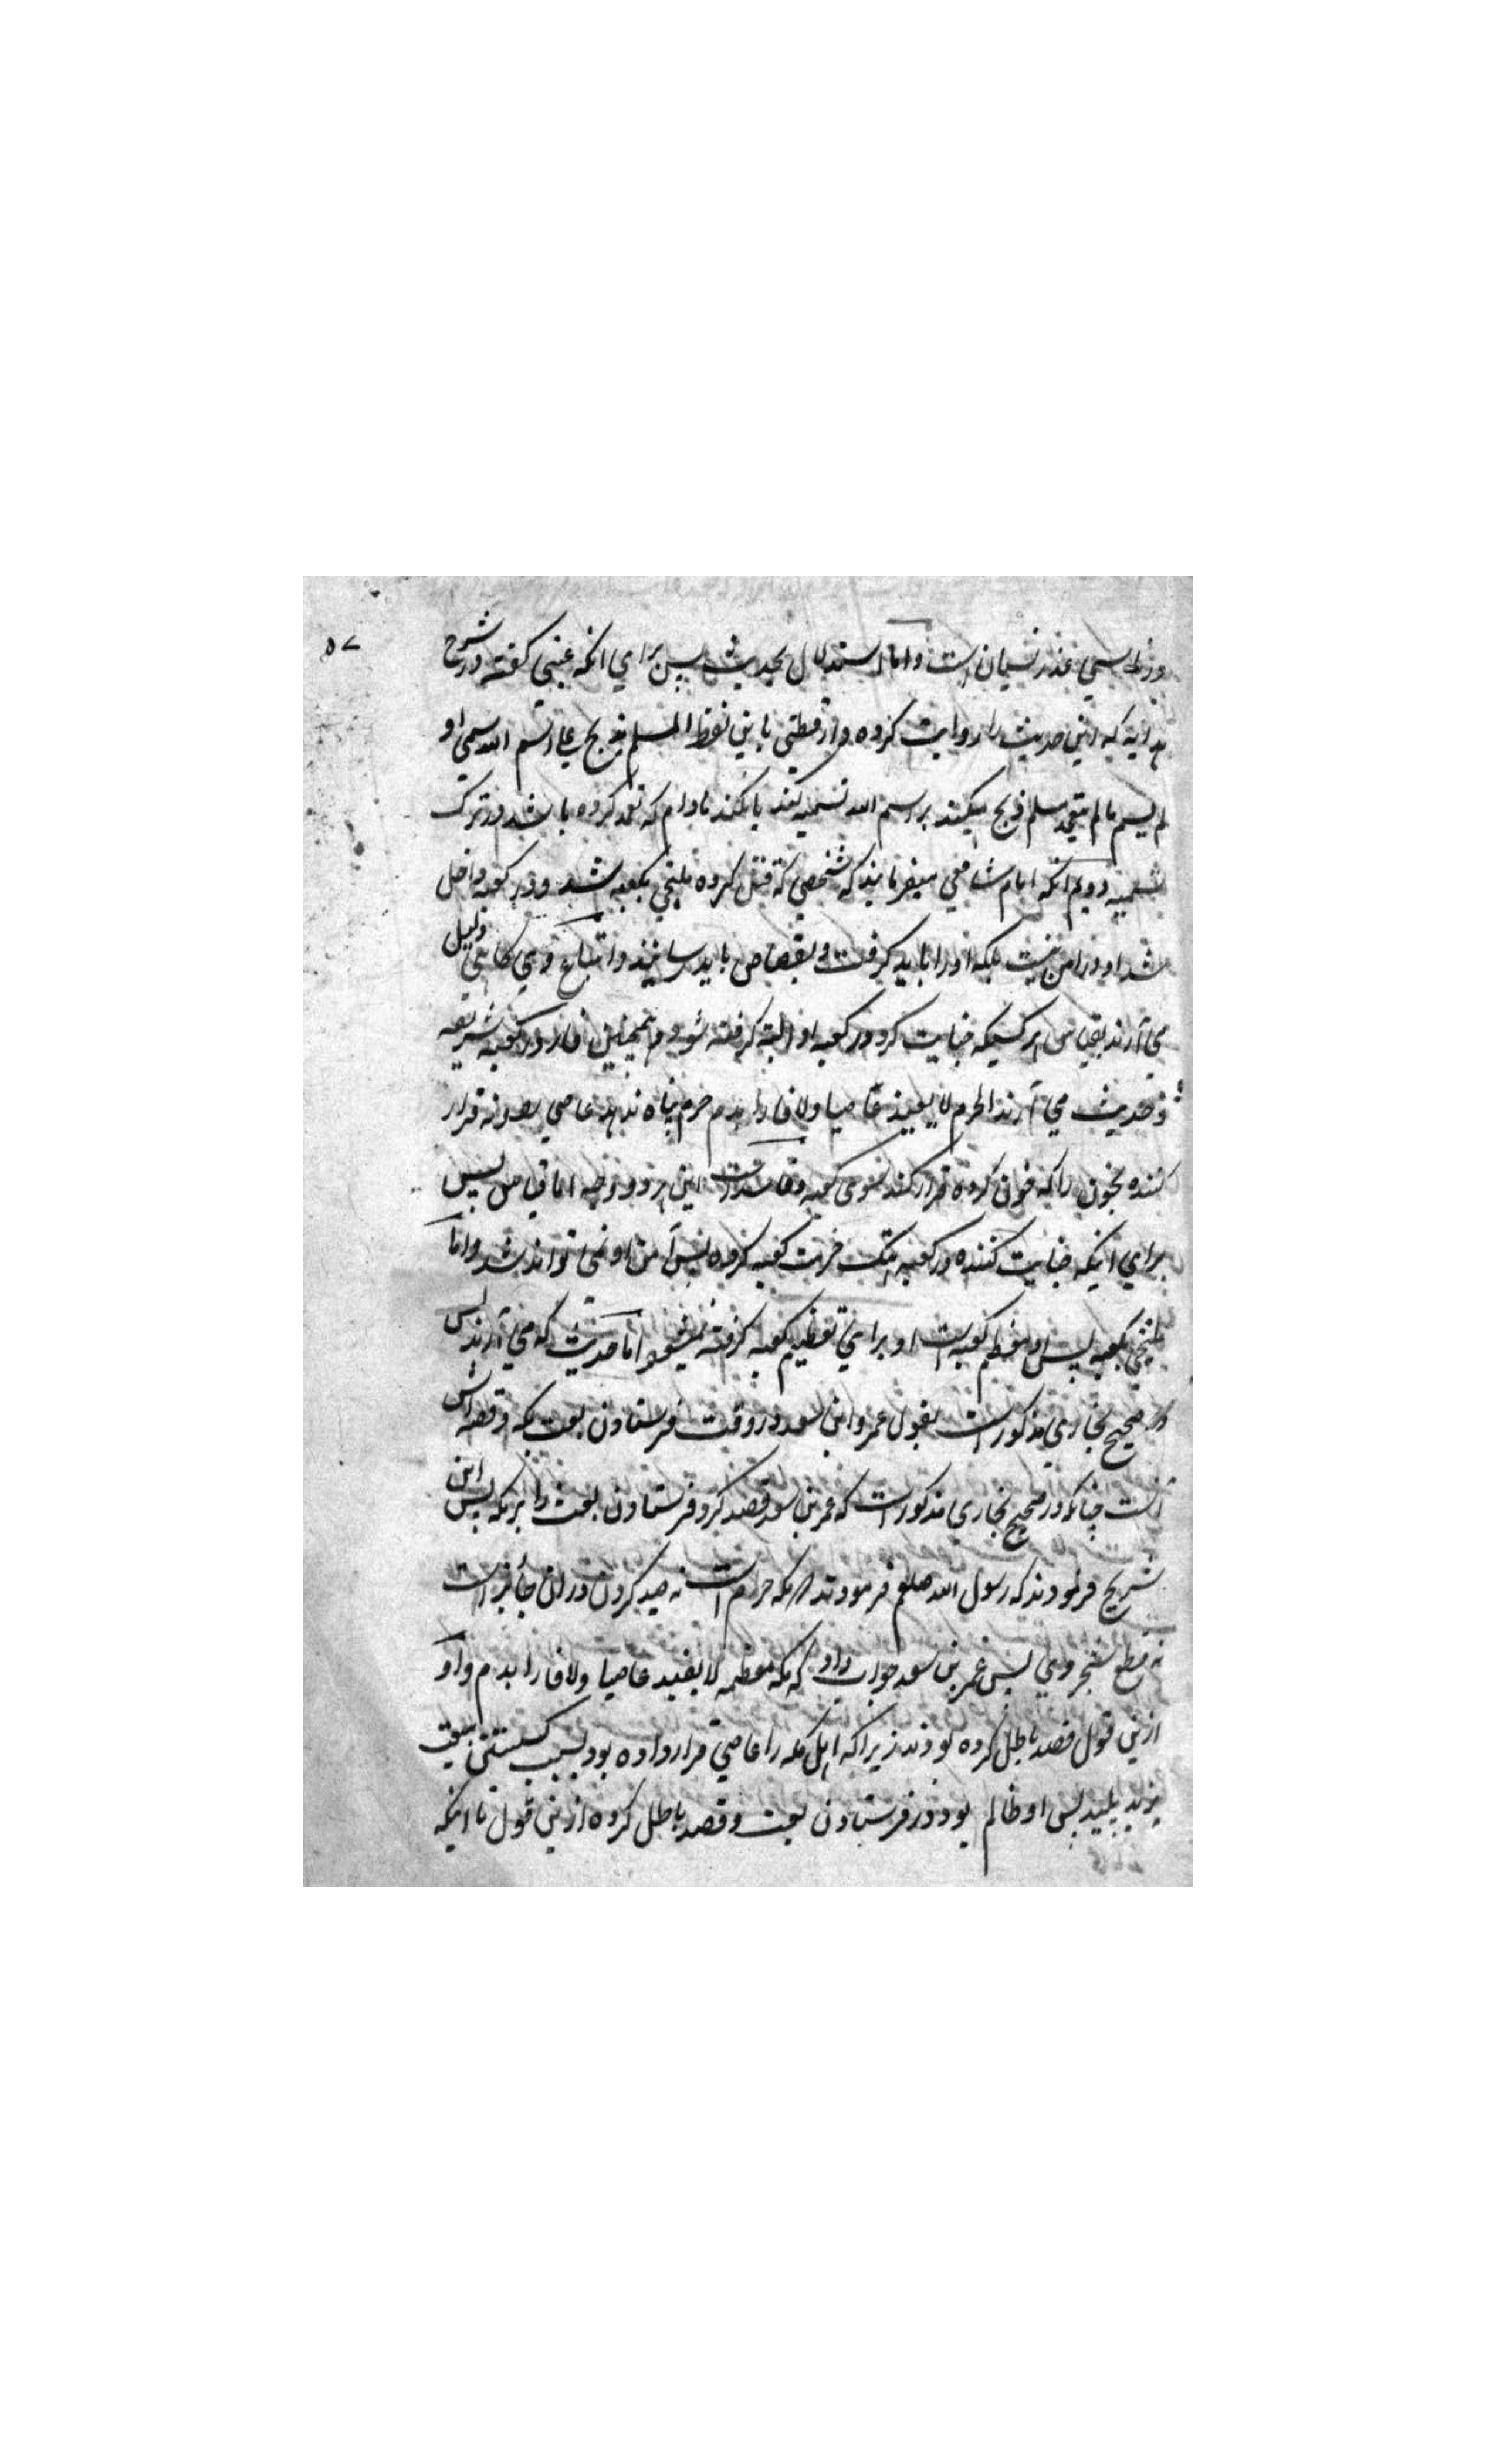 ۵۷
در ناسی عذر نسیان است و اما استدلال بحدیث پس برای انکه عینی کفته در شرح
هدایه که این حدیث را روایت کرده دارقطنی باین لفظ المسلم یذبح علی اسم الله سمی او
لم یسم مالم یتعمد مسلم ذبح میکند بر اسم الله تسمیه کند یا نکند مادام که تعمد کرده باشد در ترک
تسمیه دویم انکه امام شافعی میفرمایند که شخصی که قتل کرده ملتجی بکعبه شد و در کعبه داخل
شد او در امن نیست بلکه او را باید کرفت و بقصاص باید رسانید و اتباع وی کاهی دلیل
می آرند بقیاس هر کسیکه جنایت کرد در کعبه او البته کرفته شود همچنین فار در کعبه شریفه
و حدیث می آرند الحرم لا یعیذ عاصیا ولا فارا بدم حرم پناه ندهد عاصی را و نه فرار
کننده بخون را که خون کرده فرار کند بسوی کعبه و فاسد است این هر دو وجه اما قیاس پس
برای اینکه جنایت کننده در کعبه هتک حرمت کعبه کرده پس آمن او نمی تواند شد و اما
ملتجی بکعبه پس او معظم کعبه است او برای تعظیم کعبه کرفته نمیشود اما حدیث که می آرند پس
در صحیح بخاری مذکور است بقول عمرو ابن سعد در وقت فرستادن بعث بمکه و قصه اش
آنست چنانکه در صحیح بخاری مذکور است که عمر بن سعد قصد کرد فرستادن بعث را بر مکه پس ابن
شریح فرمودند که رسول الله صلعم فرمودند مکه حرام است نه صید کردن در ان جائز است
نه قطع شجر وی پس عمر بن سعد جواب داد که مکه معظمه لا یعیذ عاصیا ولا فارا بدم و او
ازین قول قصد باطل کرده بودند زیراکه اهل مکه را عاصی قرار داده بود بسبب کسستن بیعت
یزید پلید پس او ظالم بود در فرستادن بعث و قصد باطل کرده ازین قول تا اینکه